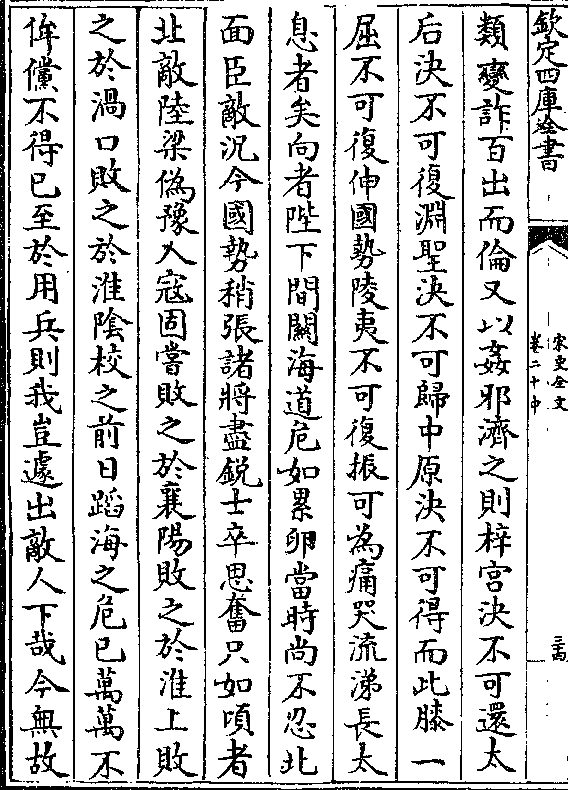 欽定四庫全書
宋史全文
卷二十中
三四
類變詐百出而倫又以姦邪濟之則梓宮決不可還太
后決不可復淵聖決不可歸中原決不可得而此膝一
屈不可復伸國勢陵夷不可復振可為痛哭流涕長太
息者矣向者陛下間關海道危如累卵當時尚不忍北
面臣敵況今國勢稍張諸將盡銳士卒思奮只如頃者
北敵陸梁偽豫入寇固嘗敗之於襄陽敗之於淮上敗
之於渦口敗之於淮陰校之前日蹈海之危已萬萬不
侔儻不得已至於用兵則我豈遽出敵人下哉今無故